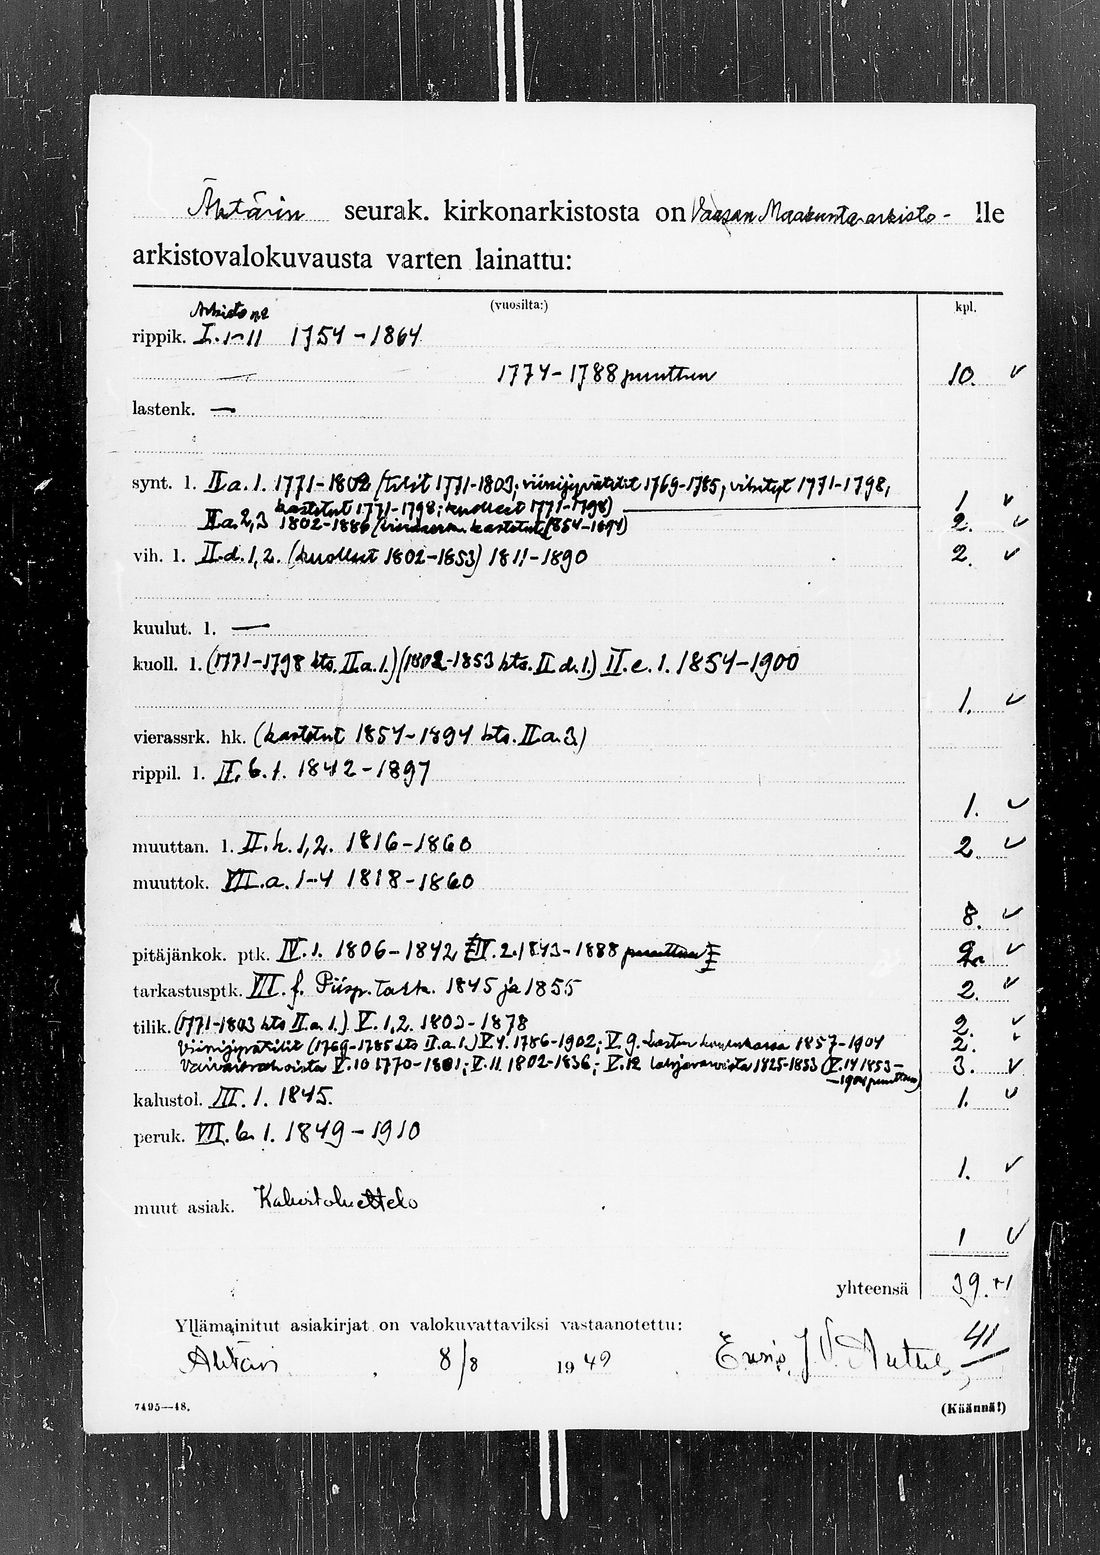 Ähtärin seurak. kirkonarkistosta on Vaasan Maakunta-arkisto- lle
arkistovalokuvausta varten lainattu:
(vuosilta:) kpl.
Arkisto no
rippik. I. 1-11 1754-1864
1774-1788 puuttuu 10. ✓
lastenk. —
synt. l. II a. 1. 1771-1802 (tilit 1771-1803; viinijyvätilit 1769-1785; vihityt 1771-1798,
kastetut 1771-1798; kuolleet 1771-1798) 1 ✓
II a. 2,3 1802-1886 (vierasseur. kastetut 1854-1894) 2. ✓
vih. l. II.d. 1,2. (kuolleet 1802-1853) 1811-1890 2. ✓
kuulut. l. —
kuoll. l. (1771-1798 kts. II a. 1.) (1802-1853 kts. II d. 1.) II. e. 1. 1854-1900
1. ✓
vierassrk. hk. (kastetut 1854-1894 kts. II a. 3.)
rippil. l. II. b. 1. 1842-1897
1. ✓
muuttan. l. II. h. 1,2. 1816-1860 2 ✓
muuttok. VII. a. 1-4 1818-1860
8. ✓
pitäjänkok. ptk. IV. 1. 1806-1842 IV. 2. 1843-1888 puuttuu 2. ✓
tarkastusptk. VII. f. Piisp. tark. 1845 ja 1855 2. ✓
tilik. (1771-1803 kts II a. 1.) V. 1,2. 1803-1878 2. ✓
Viinijyvätilit (1769-1785 kts II. a. 1.) V 4. 1786-1902; V. 9. Lasten koulukassa 1857-1904 2. ✓
Vaivaisrahoista V. 10 1770-1801; V. 11. 1802-1836; V. 12 1825-1853 (V. 14 1853- 3. ✓
-1904 puuttuu)
kalustol. III. 1. 1845. 1. ✓
peruk. VII. b. 1. 1849-1910
1. ✓
muut asiak. Kalustoluettelo
1 ✓
yhteensä 39. +1
Yllämainitut asiakirjat on valokuvattaviksi vastaanotettu: 41
Ähtäri, 8/8 1949
7495—48. (Käännä!)